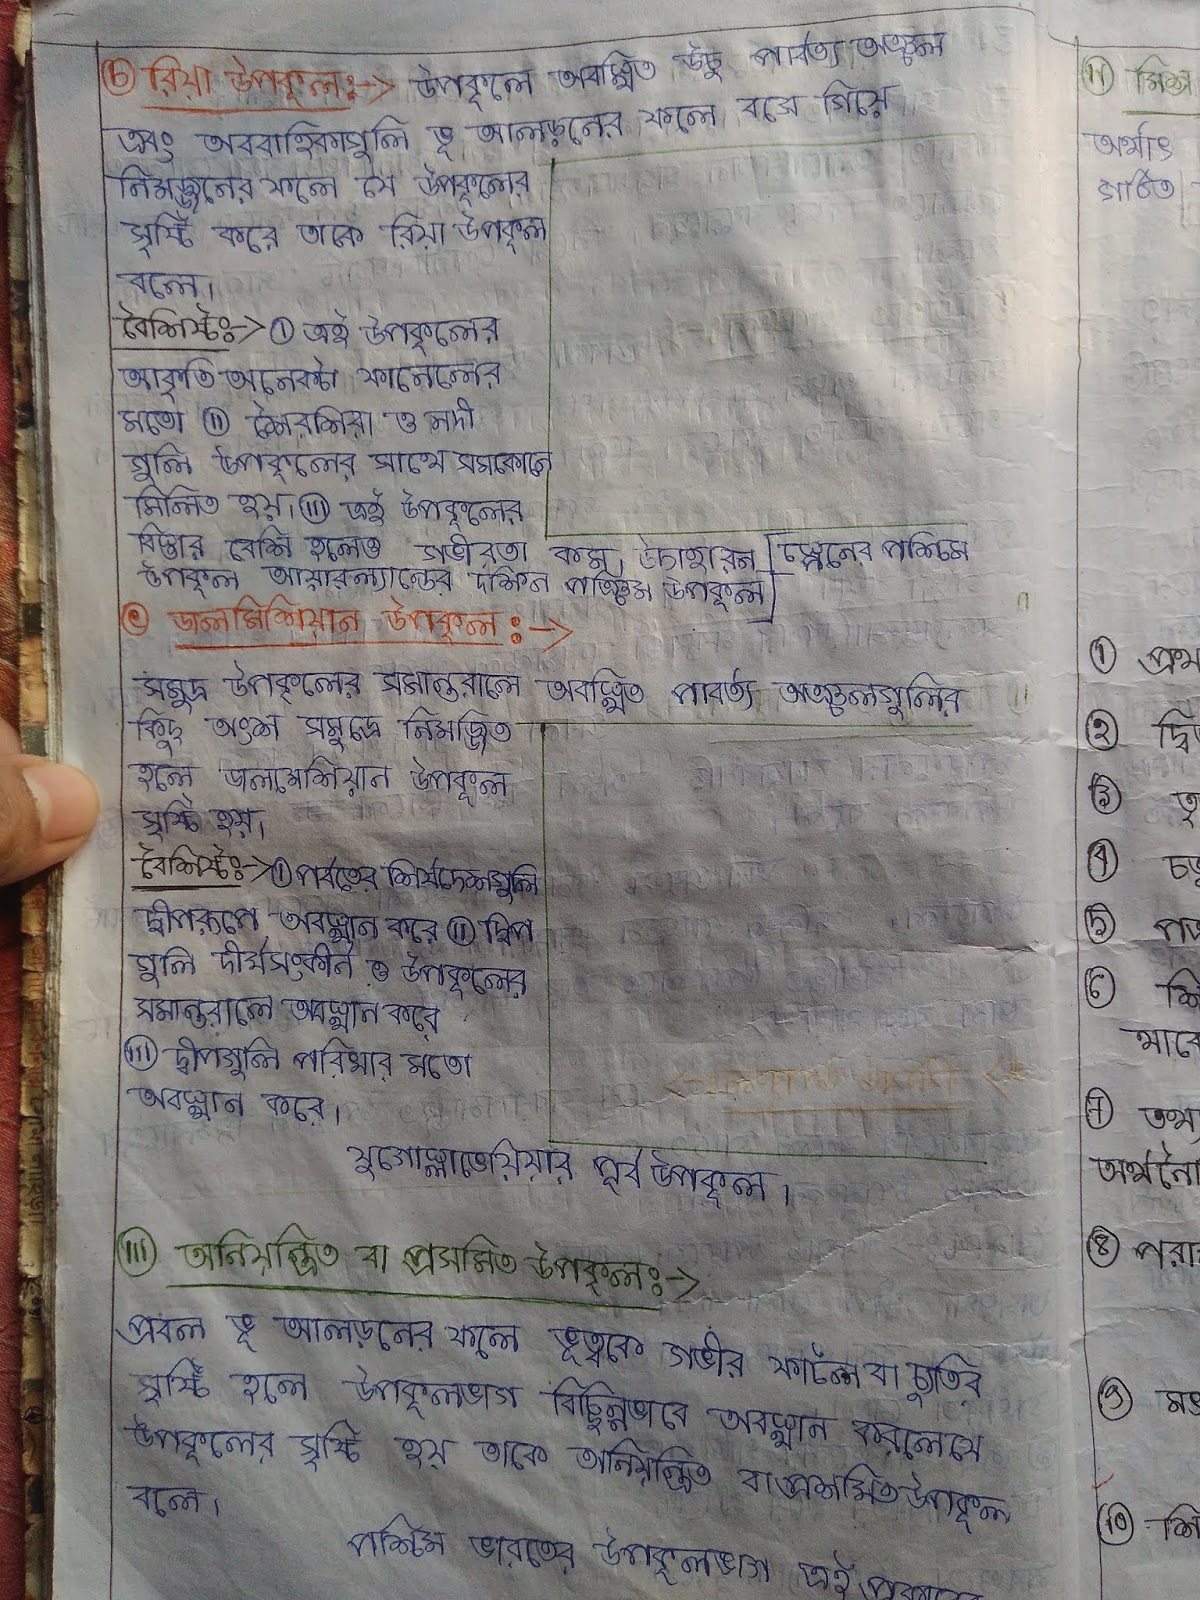 ⓑ রিয়া উপকূল :-> উপকূলে অবস্থিত উচু পার্বত্য অঞ্চল
এবং অববাহিকাগুলি ভূ আলড়নের ফলে বসে গিয়ে
নিমজ্জনের ফলে যে উপকূলের
সৃষ্টি করে তাকে রিয়া উপকূল
বলে।
বৈশিষ্ট :-> ⓘ এই উপকূলের
আকৃতি অনেকটা ফানেলের
মতো ⓘⓘ শৈরশিরা ও নদী
গুলি উপকূলের সাথে সমকোনে
মিলিত হয়। (iii) এই উপকূলের
বিস্তার বেশি হলেও গভীরতা কম, উদাহারন [স্পেনের পশ্চিমে
উপকূল আয়ারল্যান্ডের দক্ষিন পশ্চিম উপকূল]
ⓒ ডালমিশিয়ান উপকূল :->
সমুদ্র উপকূলের সমান্তরালে অবস্থিত পাবর্ত্য অঞ্চলগুলির
কিছু অংশ সমুদ্রে নিমজ্জিত
হলে ডালমেশিয়ান উপকূল
সৃষ্টি হয়।
বৈশিষ্ট :-> ⓘ পর্বতের শির্ষদেশগুলি
দ্বীপরূপে অবস্থান করে (ii) দ্বিপ
গুলি দীর্ঘসংকীর্ন ও উপকূলের
সমান্তরালে অবস্থান করে
(iii) দ্বীপগুলি পরিখার মতো
অবস্থান করে।
যুগোস্লাভেয়িয়ার পূর্ব উপকূল।
(iii) অনিয়ন্ত্রিত বা প্রসমিত উপকূল :->
প্রবল ভূ আলড়নের ফলে ভূত্বকে গভীর ফাটল বা চ্যুতির
সৃষ্টি হলে উপকূলভাগ বিছিন্নভাবে অবস্থান করলে যে
উপকূলের সৃষ্টি হয় তাকে অনিয়ন্ত্রিত বা প্রশমিত উপকূল
বলে।
পশ্চিম ভারতের উপকূলভাগ এই প্রকারের
অর্থাৎ
গঠিত
①
②
③
④
⑤
⑥
⑦
⑧
⑨
⑩